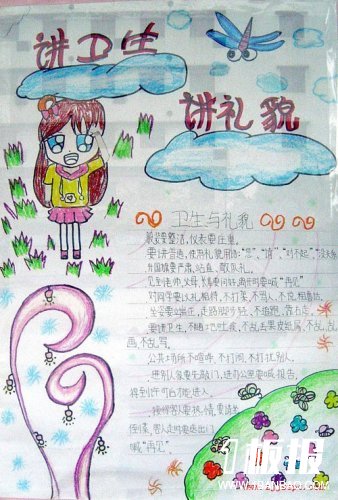 讲卫生
讲礼貌
卫生与礼貌
服装要整洁,仪表要庄重。
要讲普通,使用礼貌用语:"您"、"请"、"对不起"、"没关系
升国旗要严肃,站直,敬队礼。
见到老师、父母、长辈要问好,离开时要喊"再见"
对同学要以礼相待,不打架、不骂人、不说粗鲁话。
坐姿要端正,走路脚步轻,不追跑,靠右走。
要讲卫生,不随地吐痰,不乱丢果皮纸屑,不乱涂
画,不乱写。
公共场所不喧哗,不打闹,不打扰别人。
进别人家要先敲门,进办公室要喊报告,
得到允许后才能进入
接待客人要热情,要请坐
倒茶,客人走时要送出门
喊"再见"
板报